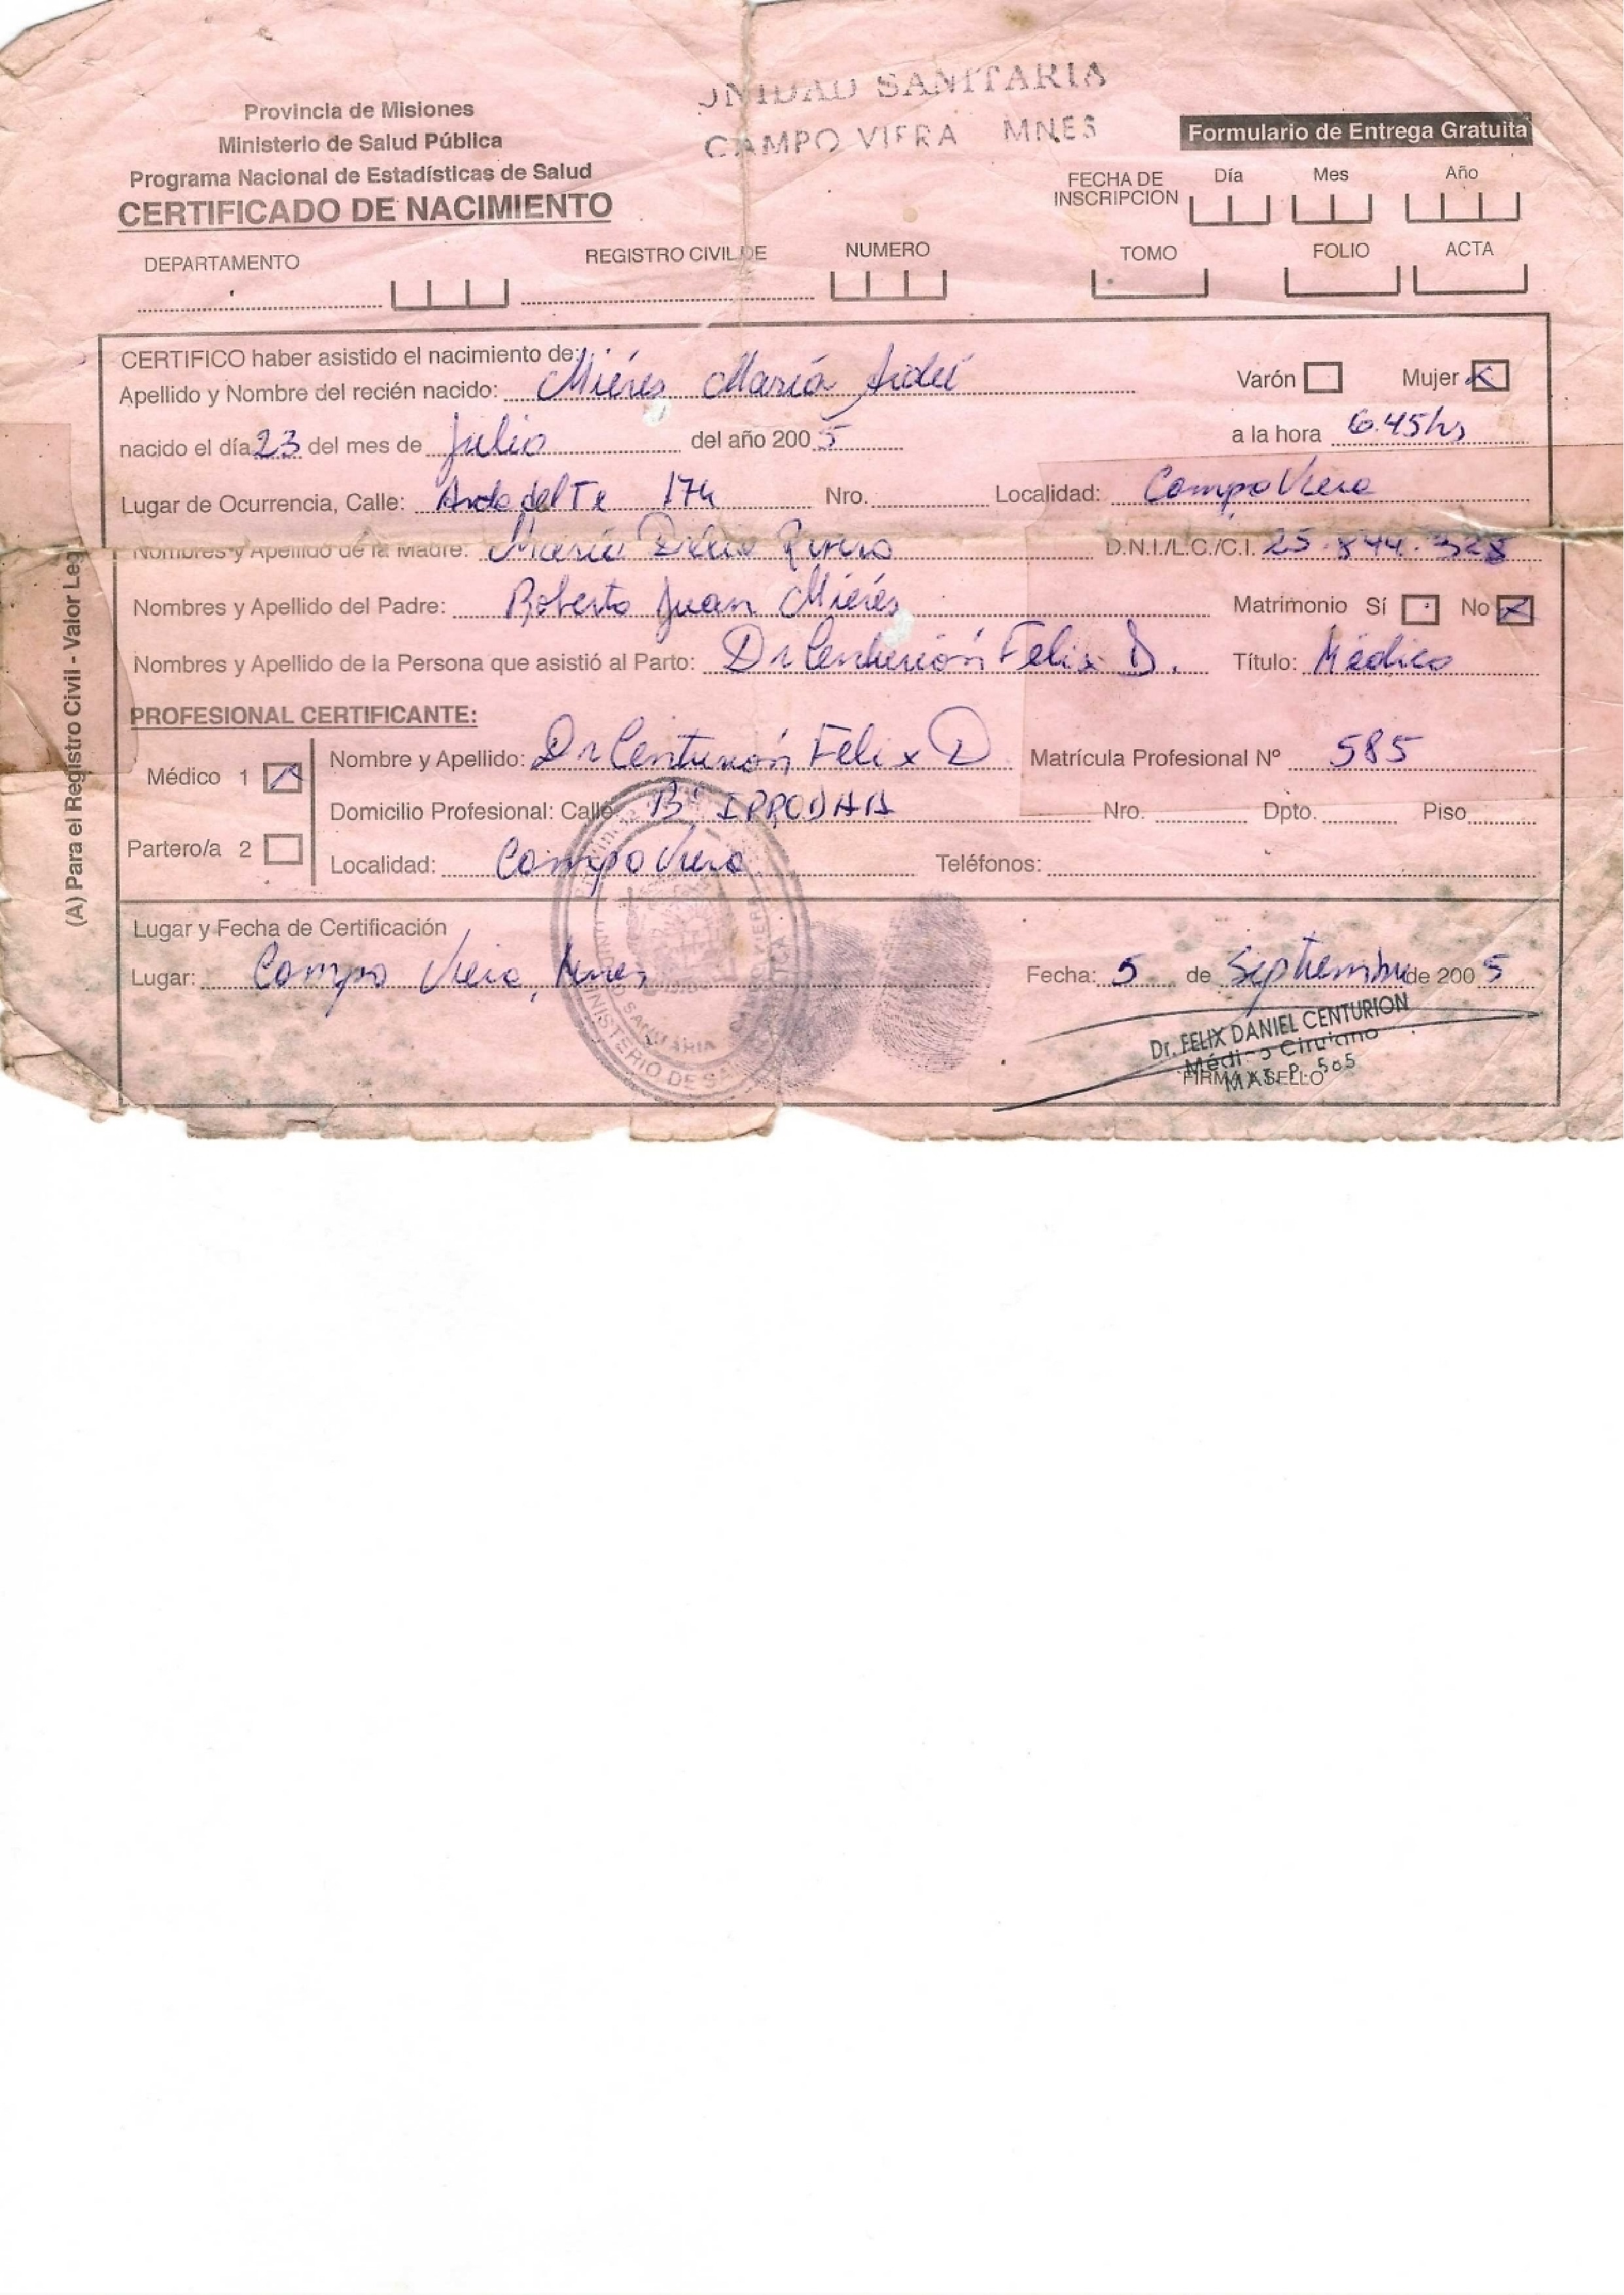 UNIDAD SANITARIA
CAMPO VIERA MNES
Provincia de Misiones
Ministerio de Salud Pública
Programa Nacional de Estadísticas de Salud
CERTIFICADO DE NACIMIENTO
Formulario de Entrega Gratuita
FECHA DE INSCRIPCION Día Mes Año
DEPARTAMENTO REGISTRO CIVIL DE NUMERO TOMO FOLIO ACTA
CERTIFICO haber asistido el nacimiento de:
Apellido y Nombre del recién nacido: Mierés María Varón Mujer
nacido el día 23 del mes de Julio del año 2005 a la hora 6.45hs
Lugar de Ocurrencia, Calle: del Te 174 Nro. Localidad: Campo Viera
Nombres y Apellido de la Madre: María D.N.I./L.C./C.I. 25.844.328
Nombres y Apellido del Padre: Roberto Juan Mierés Matrimonio Sí No
Nombres y Apellido de la Persona que asistió al Parto: Dr Centurión Felix D. Título: Médico
PROFESIONAL CERTIFICANTE:
Médico 1 Nombre y Apellido: Dr Centurión Felix D Matrícula Profesional Nº 585
Domicilio Profesional: Calle Bº IPRODHA Nro. Dpto. Piso
Partero/a 2 Localidad: Campo Viera Teléfonos:
Lugar y Fecha de Certificación
Lugar: Campo Viera, Mnes Fecha: 5 de Septiembre de 2005
Dr. FELIX DANIEL CENTURION
Médico Cirujano
MAT. P.
FIRMA Y SELLO
(A) Para el Registro Civil - Valor Leg
UNIDAD SANITARIA CAMPO VIERA
MINISTERIO DE